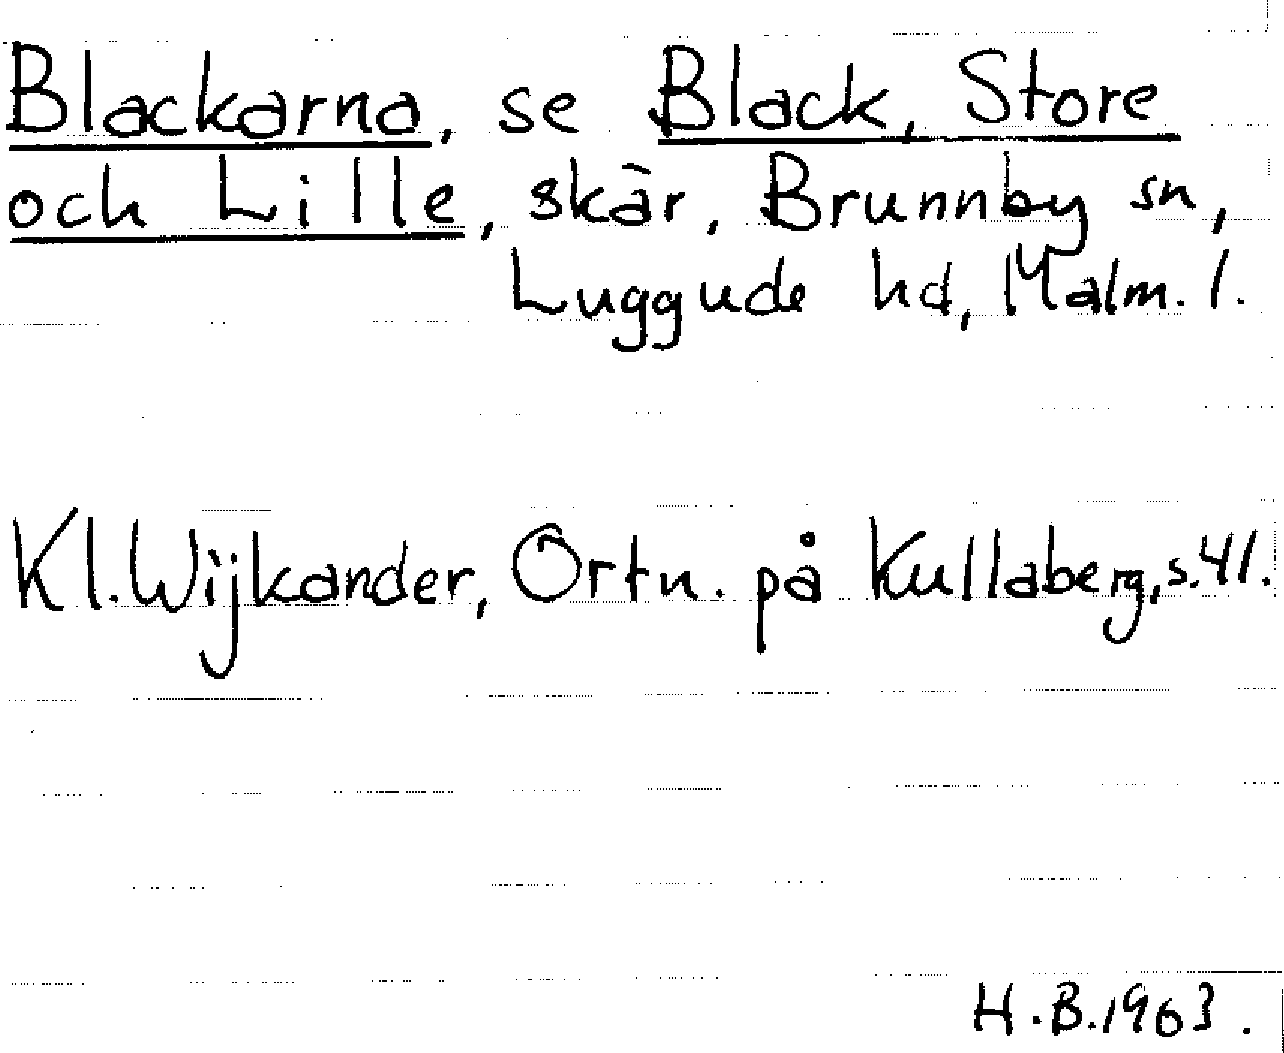 Blackarna, se Black, Store
och Lille, skär, Brunnby sn,
Luggude hd, Malm. l.
Kl. Wijkander, Ortn. på Kullaberg, s. 41.
H.B. 1963.